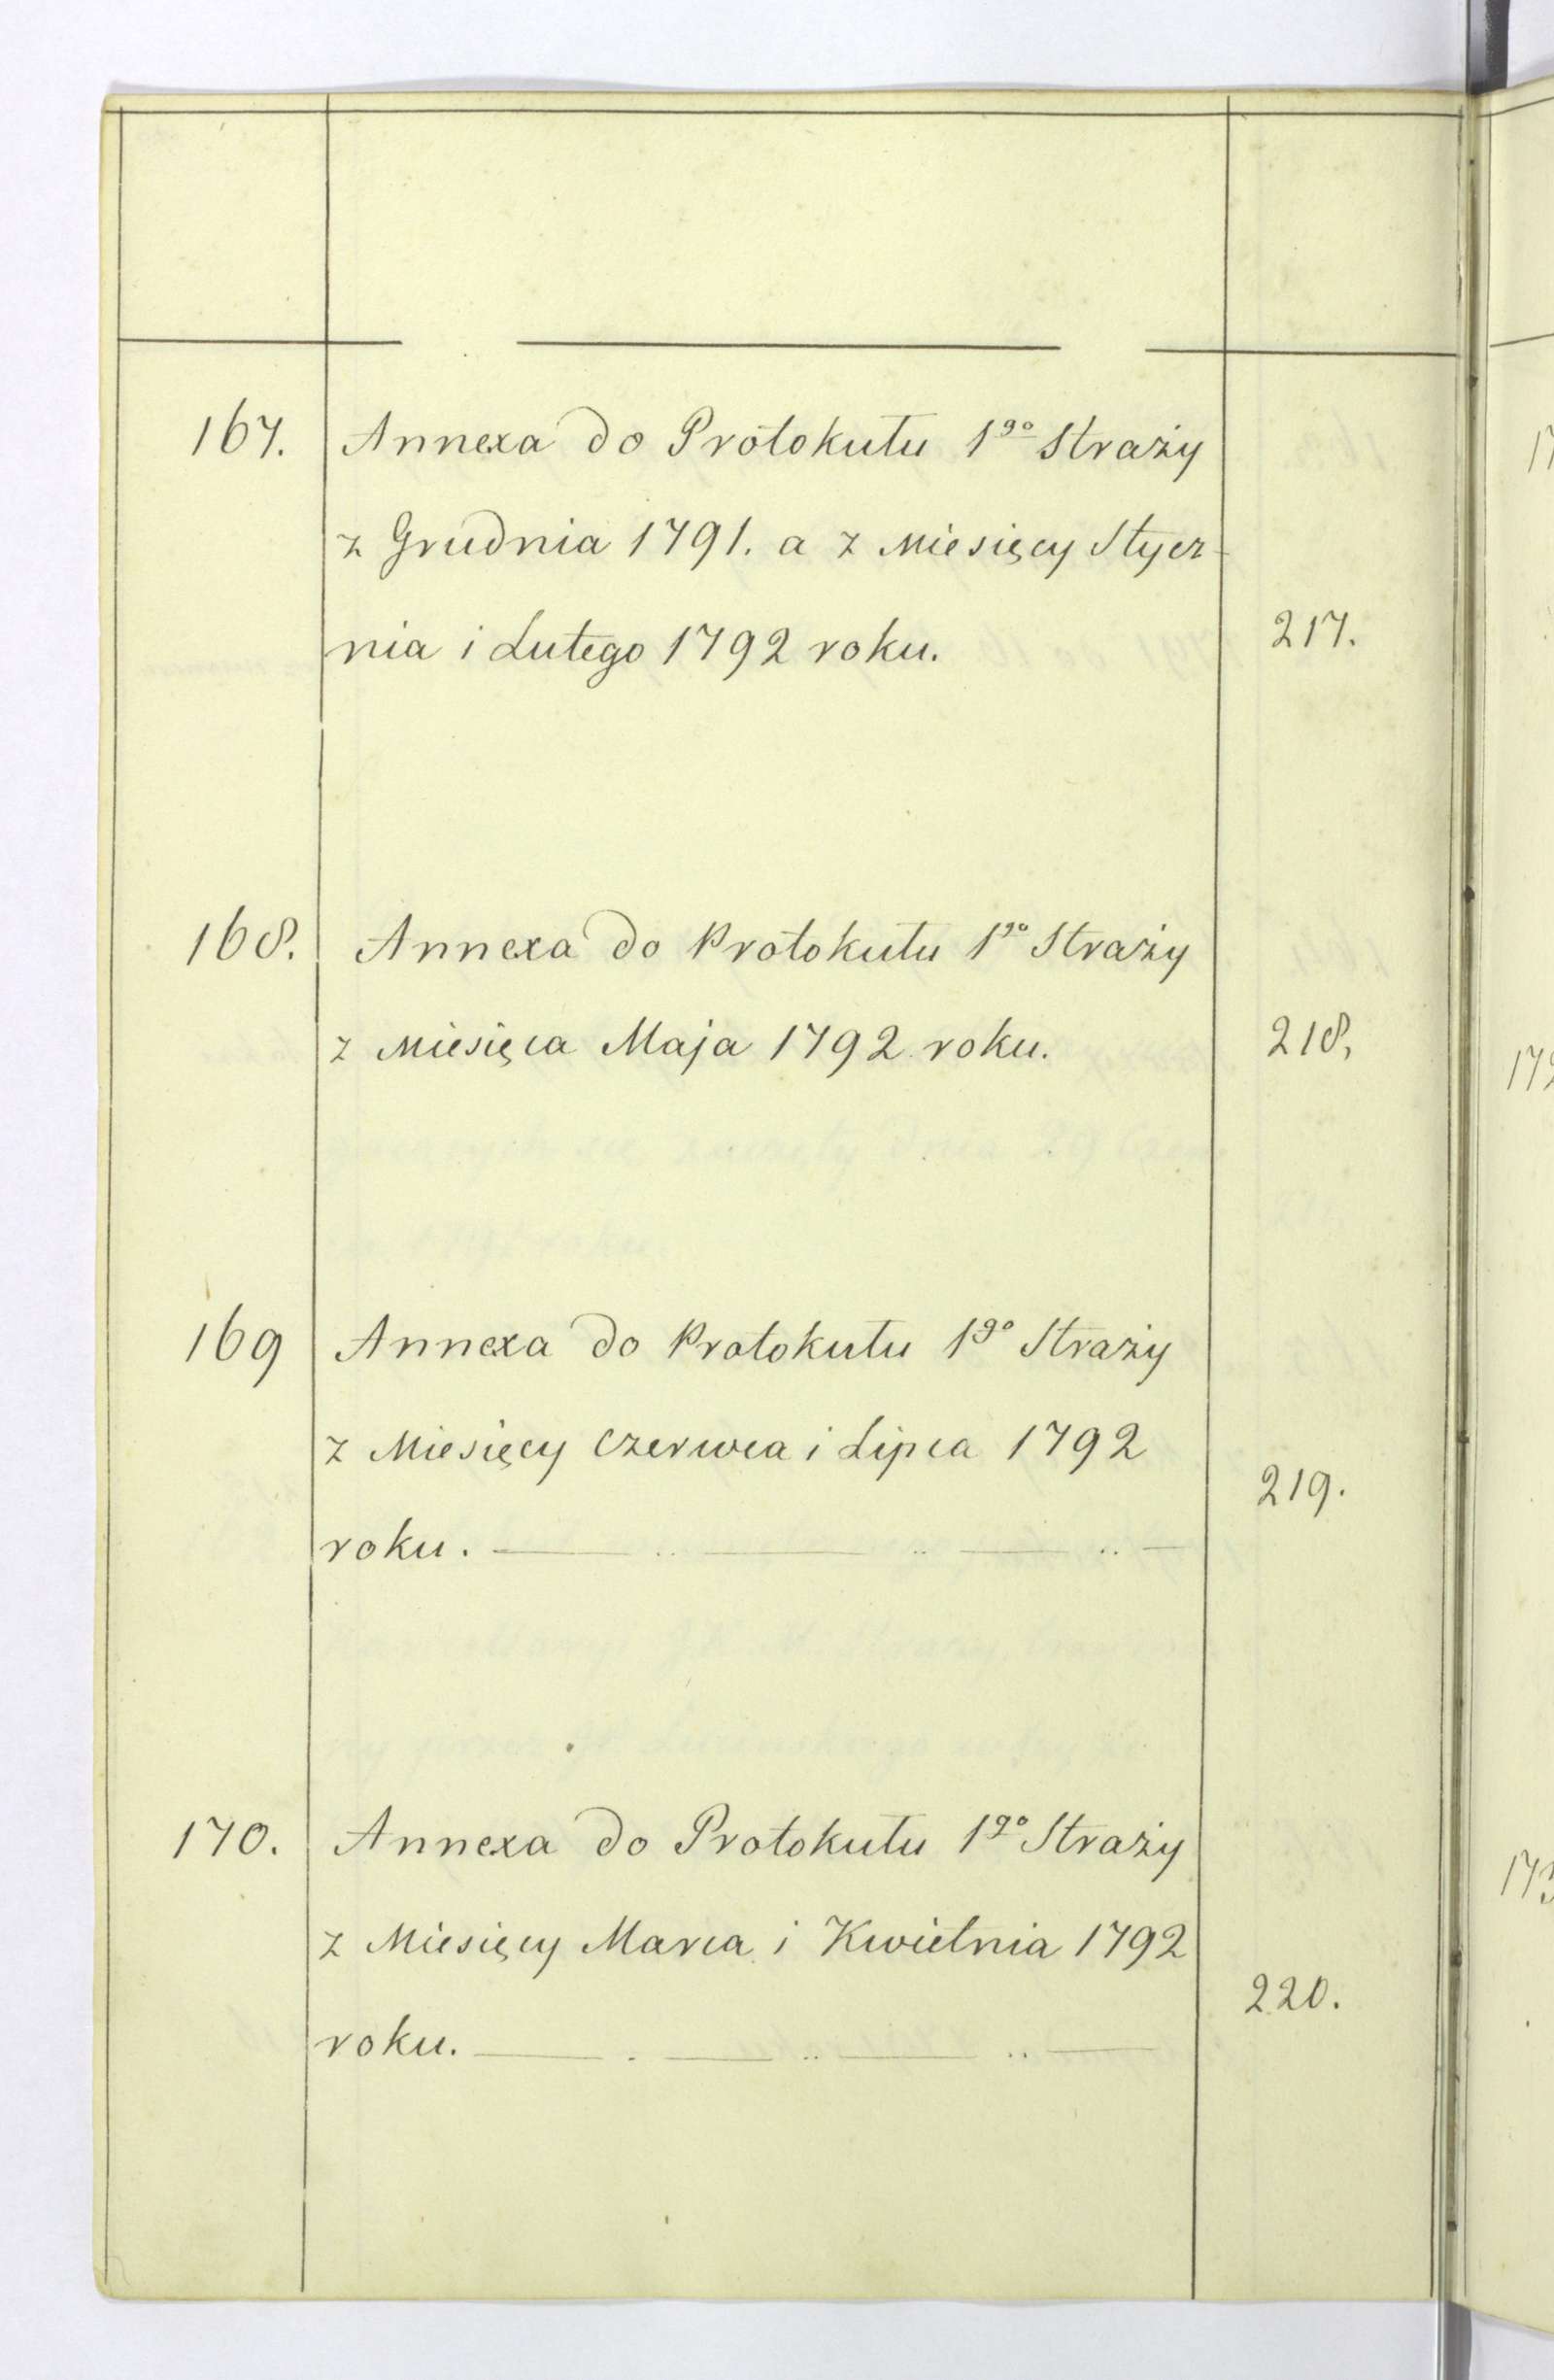 167. Annexa do Protokułu 1go Straży
z Grudnia 1791. a z Miesięcy Stycz-
nia i Lutego 1792 roku. 217.
168. Annexa do Protokułu 1go Straży
z Miesięca Maja 1792 roku. 218,
169 Annexa do Protokułu 1go Straży
z Miesięcy Czerwca i Lipca 1792
219.
roku.
170. Annexa do Protokułu 1go Straży
z Miesięcy Marca i Kwietnia 1792
220.
roku.